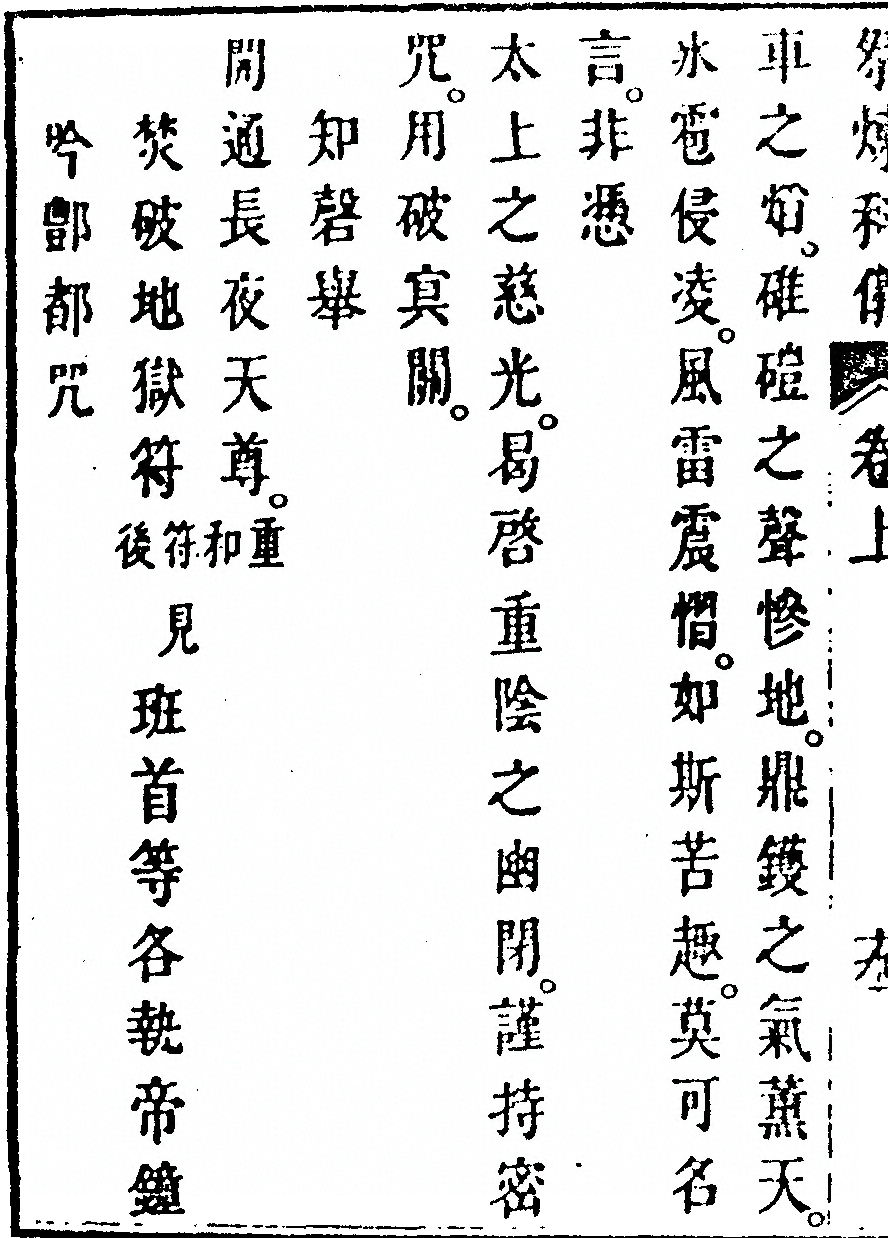 祭煉科儀　卷上
車之始。碓磑之聲慘地。鼎鑊之氣薰天。
氷雹侵凌。風雷震慴。如斯苦趣。莫可名
言。非憑
太上之慈光。曷啓重陰之幽閉。謹持密
咒。用破冥關。
知磬舉
開通長夜天尊。重和
焚破地獄符符見後班首等各執帝鐘
吟酆都咒